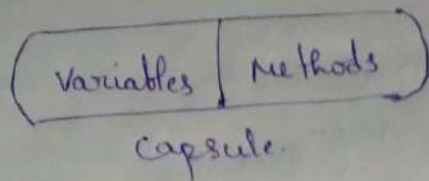 Variables Methods
capsule.